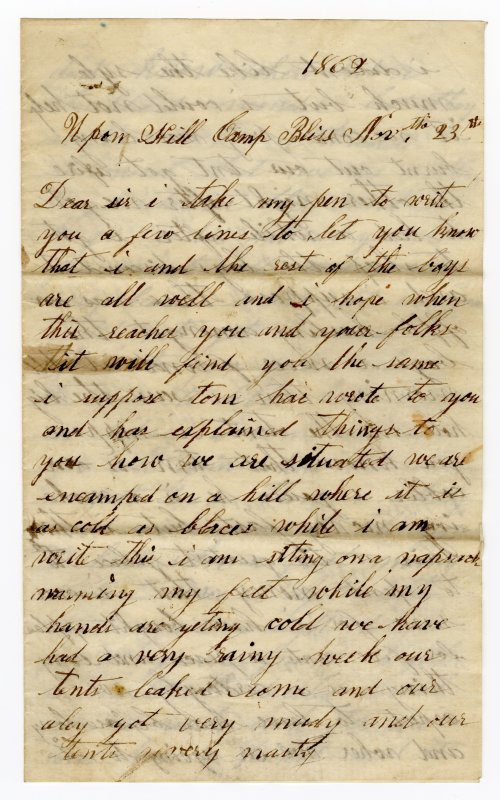 1862
Upom Hill Camp Bliss Nov. th 23rd
Dear sir i take my pen to write
you a few lines to let you know
that i and the rest of the boys
are all well and i hope when
this reaches you and your folks
it will find you the same
i suppose tom has wrote to you
and has explained things to
you how we are situated we are
encamped on a hill where it is
as cold as blaces while i am
write this i am siting on a napsack
warming my feet while my
hands are geting cold we have
had a very rainy week our
tents leaked some and our
aley got very mudy and our
tents very nasty